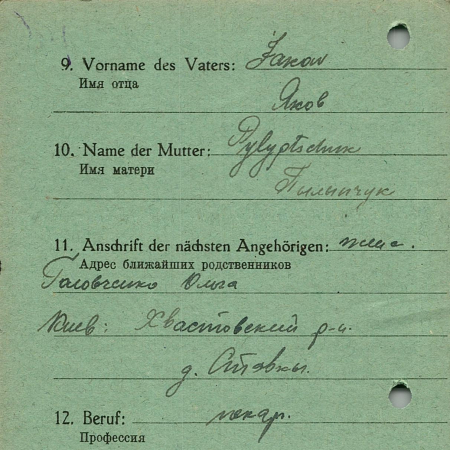 9. Vorname des Vaters: Jakow
Имя отца
Яков
10. Name der Mutter: Pylyptschuk
Имя матери
Пилипчук
11. Anschrift der nächsten Angehörigen: жена.
Адрес ближайших родственников
Головченко Ольга
Киев: Хвастовский р-н.
д. Ставки.
12. Beruf: пекар.
Профессия